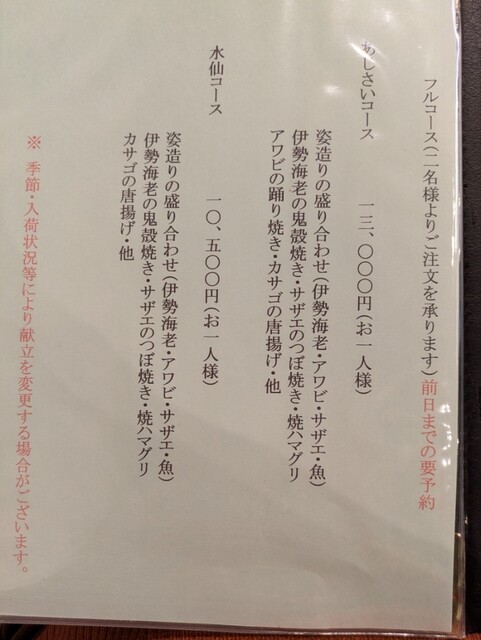 フルコース(二名様よりご注文を承ります)前日までの要予約
あじさいコース　一三、〇〇〇円(お一人様)
姿造りの盛り合わせ(伊勢海老・アワビ・サザエ・魚)
伊勢海老の鬼殻焼き・サザエのつぼ焼き・焼ハマグリ
アワビの踊り焼き・カサゴの唐揚げ・他
水仙コース　一〇、五〇〇円(お一人様)
姿造りの盛り合わせ(伊勢海老・アワビ・サザエ・魚)
伊勢海老の鬼殻焼き・サザエのつぼ焼き・焼ハマグリ
カサゴの唐揚げ・他
※ 季節・入荷状況等により献立を変更する場合がございます。